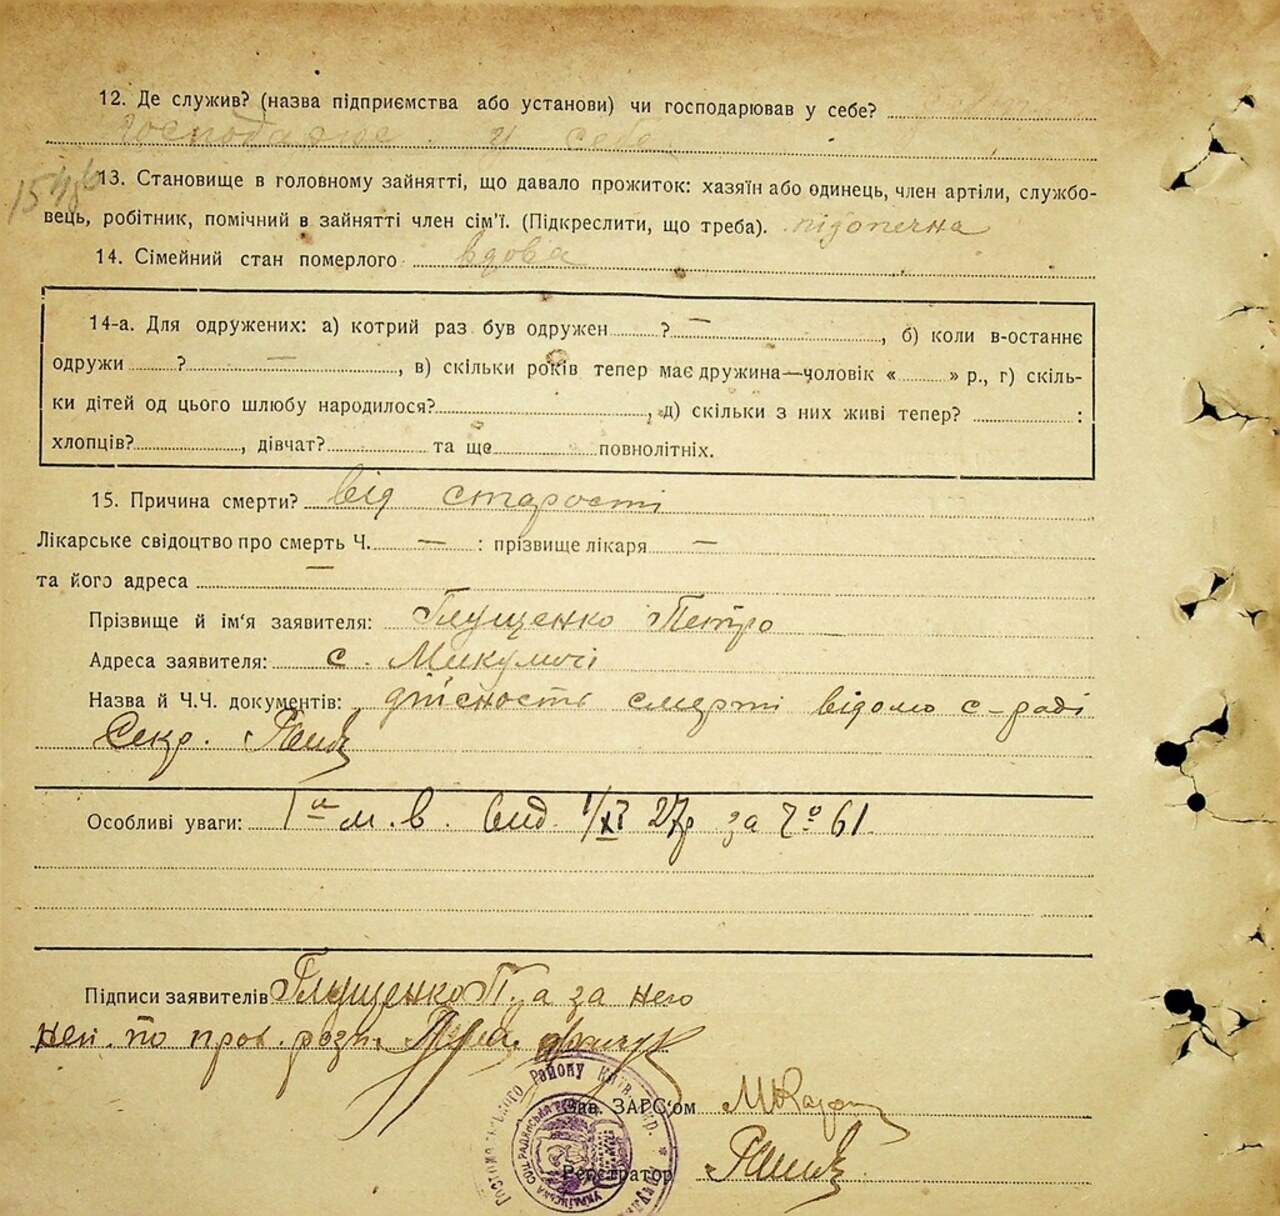 12. Де служив? (назва підприємства або установи) чи господарював у себе?
господарює у себе
13. Становище в головному зайнятті, що давало прожиток: хазяїн або одинець, член артіли, службо-
вець, робітник, помічний в зайнятті член сім'ї. (Підкреслити, що треба). підопечна
14. Сімейний стан померлого вдова
14-а. Для одружених: а) котрий раз був одружен ? — , б) коли в-останнє
одружи ? — , в) скільки років тепер має дружина—чоловік « » р., г) скіль-
ки дітей од цього шлюбу народилося? , д) скільки з них живі тепер? :
хлопців? , дівчат? та ще повнолітніх.
15. Причина смерти? від старости
Лікарське свідоцтво про смерть Ч. — : прізвище лікаря —
та його адреса —
Прізвище й ім'я заявителя: Глущенко Петро
Адреса заявителя: с. Микуличі
Назва й Ч.Ч. документів: дійсность смерті відомо с-раді
Секр.
Особливі уваги: м. в. вид. 1/XI 27р за № 61
Підписи заявителів Глущенко П. а за него
неп. по прог. розп.
Району Київ. Окр.
Зав. ЗАГС'ом
УКРАЇНСЬКА СОЦ. РАДЯНСЬКА
Регєстратор